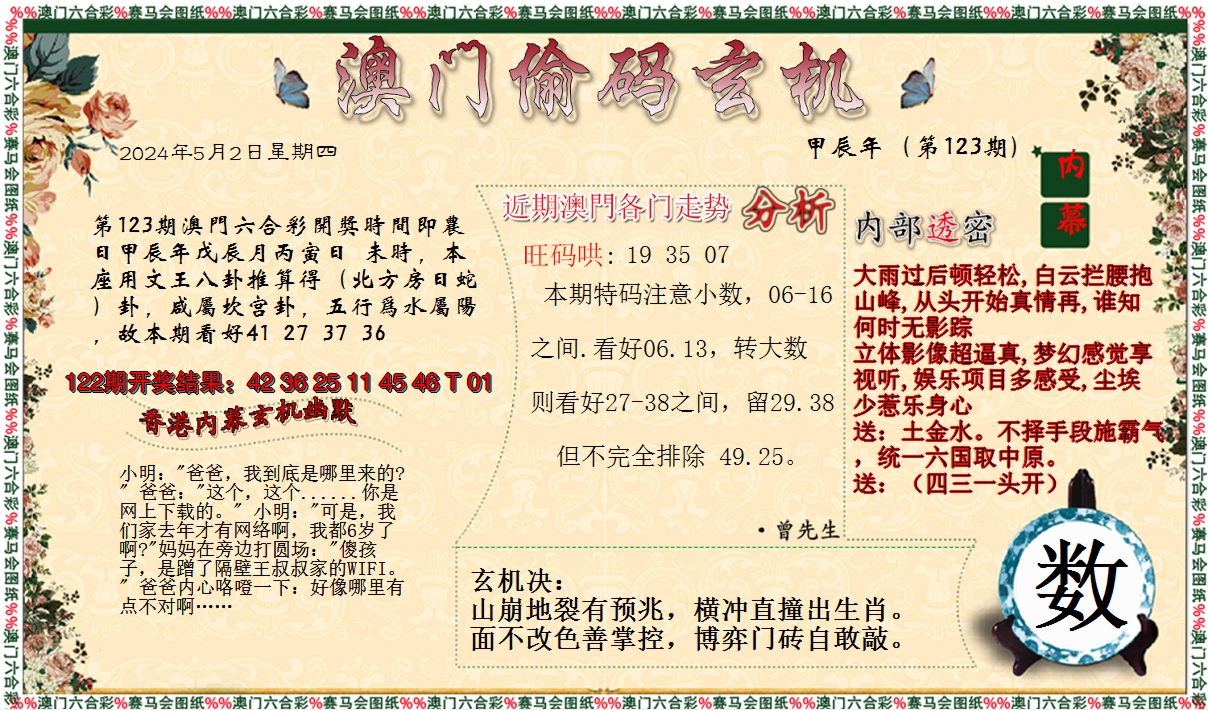 %%澳门六合彩%赛马会图纸%%澳门六合彩%赛马会图纸%%澳门六合彩%赛马会图纸%%澳门六合彩%赛马会图纸%%澳门六合彩%赛马会图纸%%澳门六合彩%赛马会图纸%%
澳门偷码玄机
2024年5月2日星期四
甲辰年 (第123期)
内幕
第123期澳門六合彩開獎時間即農
日甲辰年戊辰月丙寅日 未時，本
座用文王八卦推算得（北方房日蛇
）卦，咸屬坎宫卦，五行爲水屬陽
，故本期看好41 27 37 36
122期开奖结果：42 36 25 11 45 46 T 01
香港内幕玄机幽默
小明："爸爸，我到底是哪里来的?
" 爸爸："这个，这个......你是
网上下载的。" 小明："可是，我
们家去年才有网络啊，我都6岁了
啊?"妈妈在旁边打圆场："傻孩
子，是蹭了隔壁王叔叔家的WIFI。
" 爸爸内心咯噔一下：好像哪里有
点不对啊……
近期澳門各门走势 分析
旺码哄: 19 35 07
本期特码注意小数，06-16
之间.看好06.13，转大数
则看好27-38之间，留29.38
但不完全排除 49.25。
·曾先生
内部透密
大雨过后顿轻松,白云拦腰抱
山峰,从头开始真情再,谁知
何时无影踪
立体影像超逼真,梦幻感觉享
视听,娱乐项目多感受,尘埃
少惹乐身心
送：土金水。不择手段施霸气
，统一六国取中原。
送：（四三一头开）
玄机决：
山崩地裂有预兆，横冲直撞出生肖。
面不改色善掌控，博弈门砖自敢敲。
数
%%澳门六合彩%赛马会图纸%%澳门六合彩%赛马会图纸%%澳门六合彩%赛马会图纸%%澳门六合彩%赛马会图纸%%澳门六合彩%赛马会图纸%%澳门六合彩%赛马会图纸%%